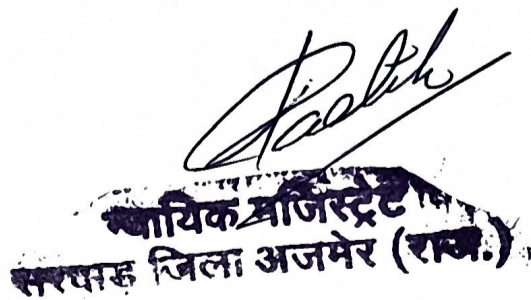 न्यायिक मजिस्ट्रेट
सरवाड जिला अजमेर (राज.)